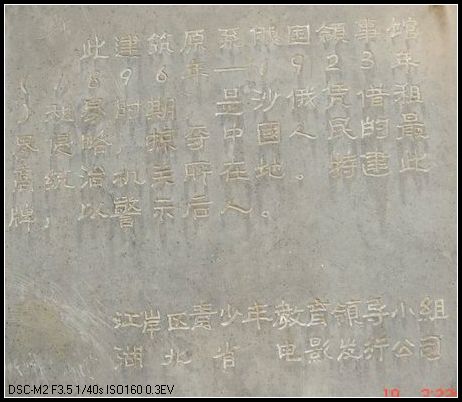 此建筑原系俄国领事馆
(1896年—1923年
)租易时期,是沙俄借租
界侵略,掠夺中国人民的最
旧统治机关所在地。特建此
牌,以警示后人。
江岸区青少年教育领导小组
湖北省电影发行公司
DSC-M2 F3.5 1/40s ISO160 0.3EV